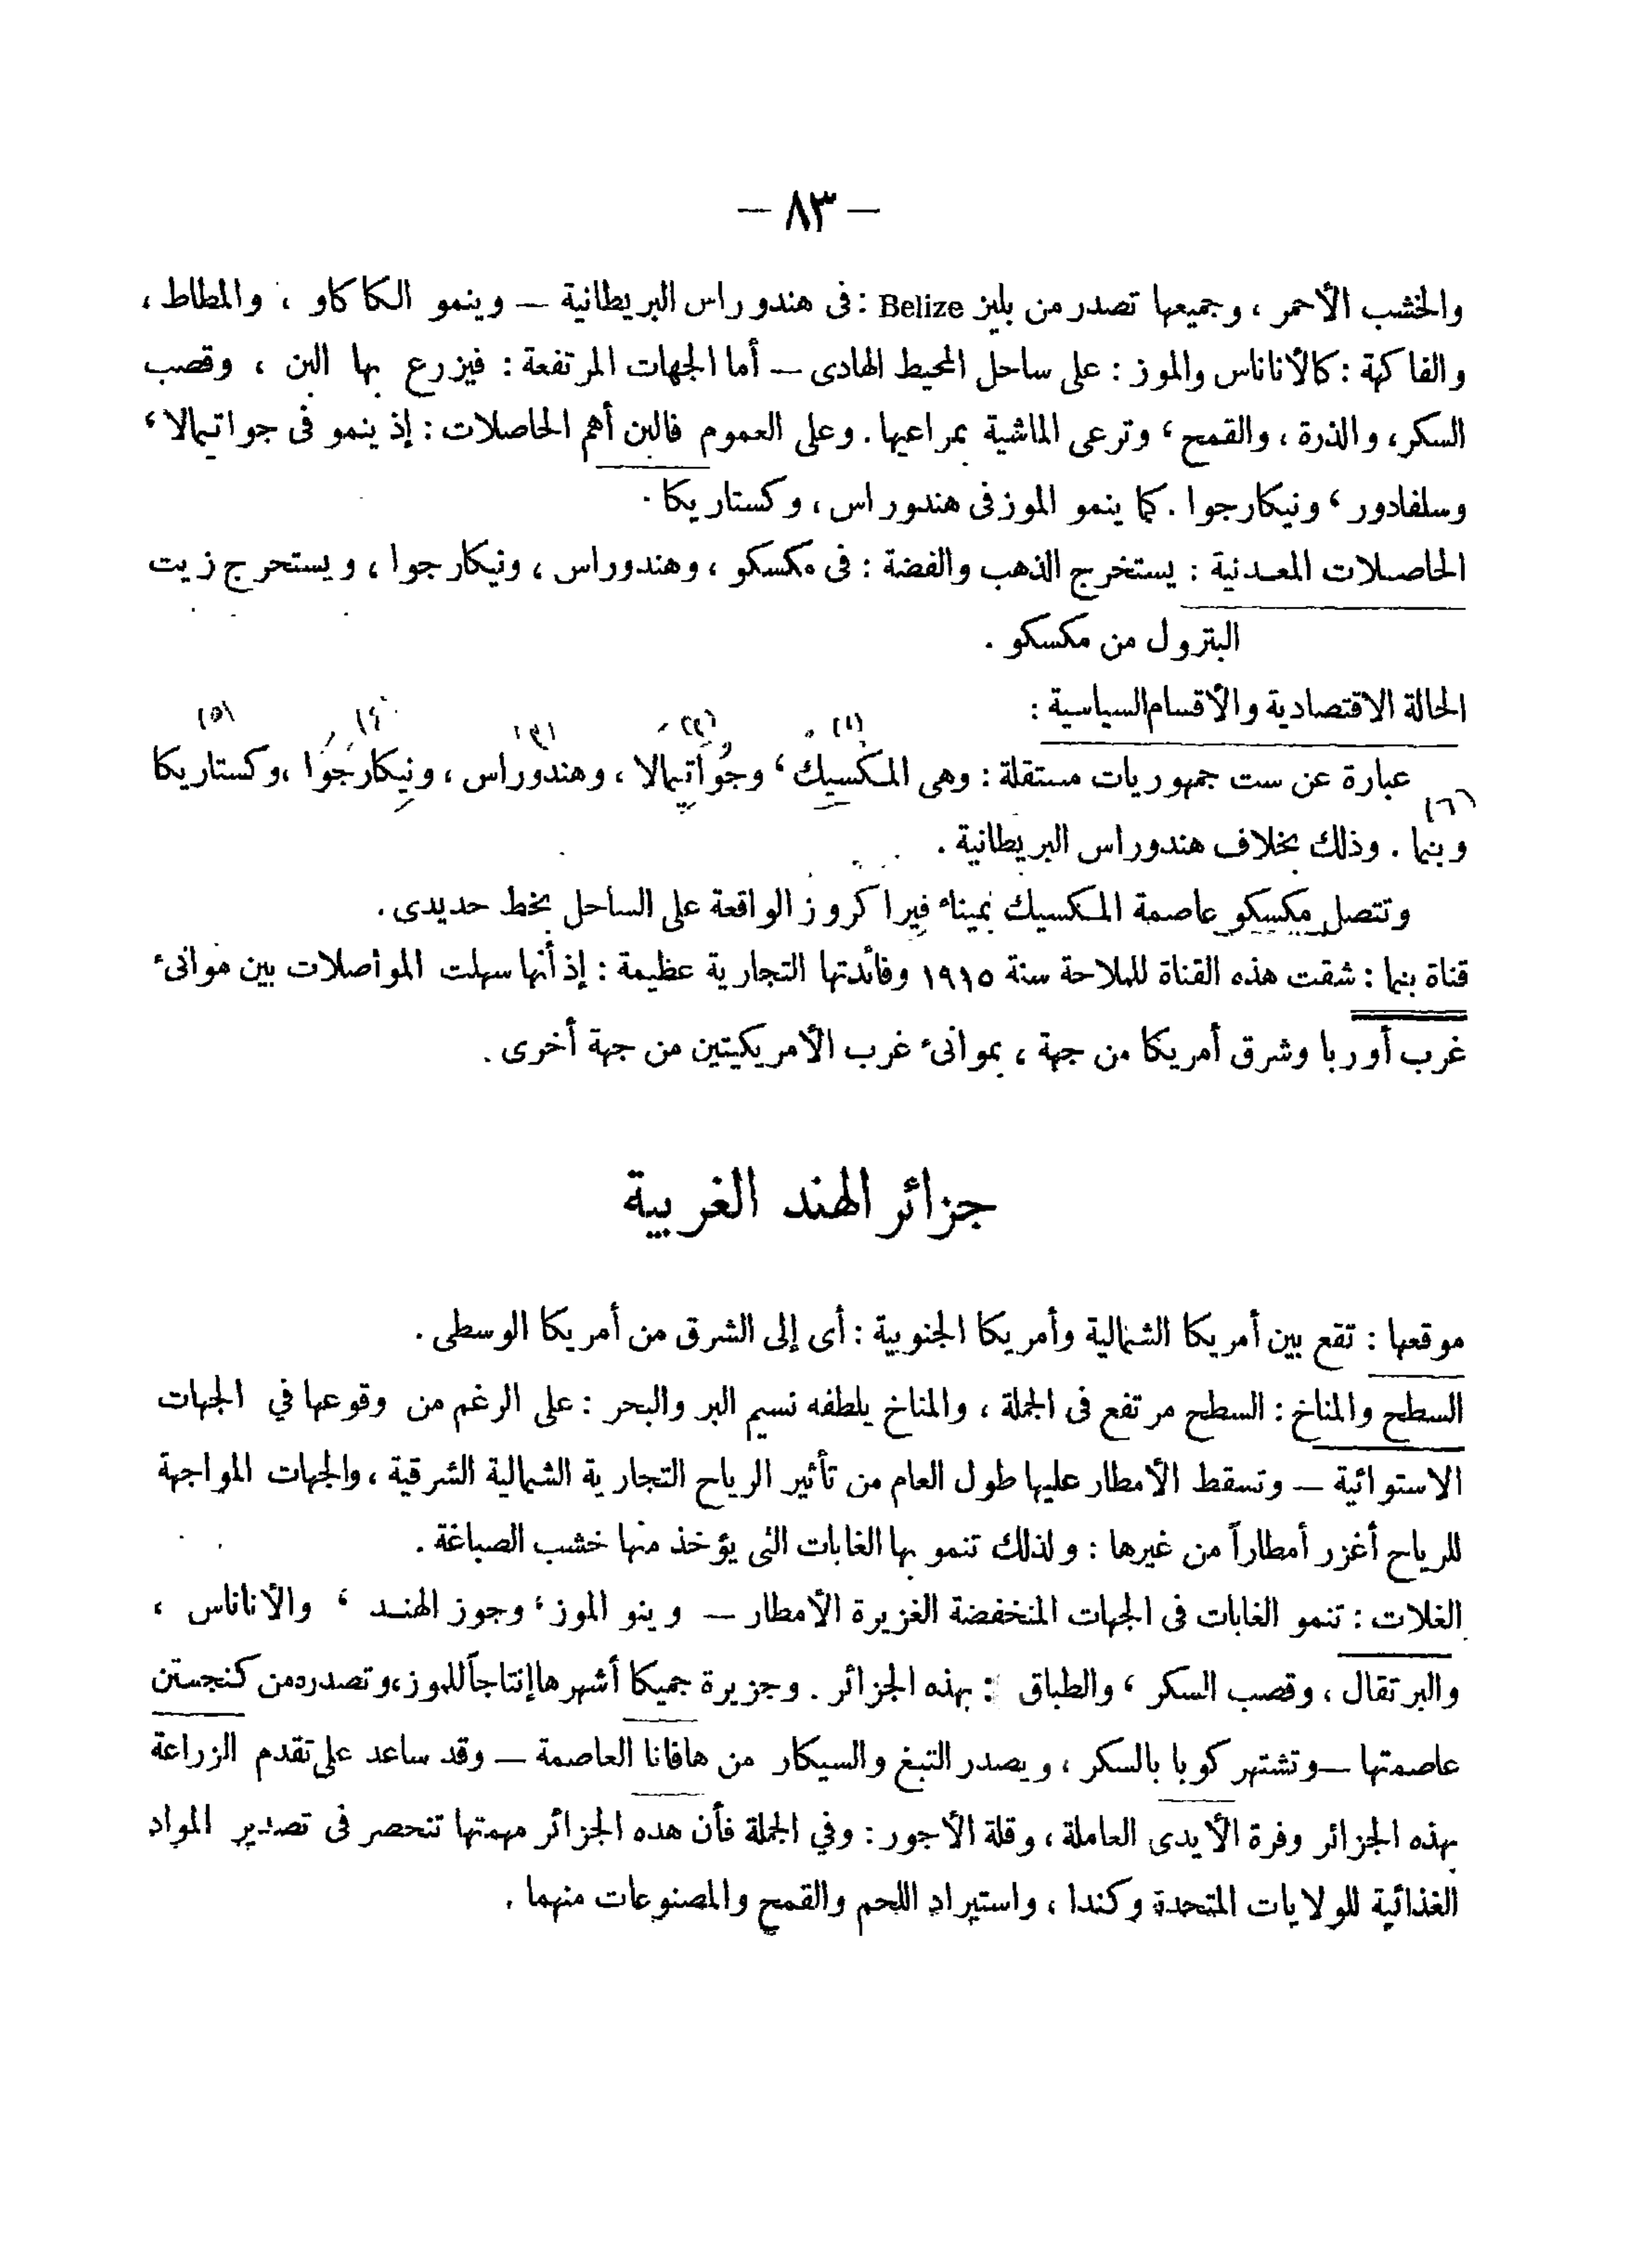 — ٨٣ —
والخشب الأحمر ، وجميعها تصدر من بليز Belize : فى هندوراس البريطانية — وينمو الكاكاو ، والمطاط ،
والفاكهة : كالأناناس والموز : على ساحل المحيط الهادى — أما الجهات المرتفعة : فيزرع بها البن ، وقصب
السكر، والذرة ، والقمح ، وترعى الماشية بمراعيها . وعلى العموم فالبن أهم الحاصلات : إذ ينمو فى جواتيمالا ،
وسلفادور ، ونيكارجوا . كما ينمو الموز فى هندوراس ، وكستاريكا .
الحاصلات المعدنية : يستخرج الذهب والفضة : فى مكسكو ، وهندوراس ، ونيكارجوا ، ويستحرج زيت
البترول من مكسكو .
الحالة الاقتصادية والأقسام السياسية :
(١) (٢) (٣) (٤) (٥)
عبارة عن ست جمهوريات مستقلة : وهى المكسيك ، وجُواتيمالا ، وهندوراس ، ونِيكارَجُوَا ،وكستاريكا
(٦)
وبنما . وذلك بخلاف هندوراس البريطانية .
وتتصل مكسكو عاصمة المكسيك بميناء فيرا كروز الواقعة على الساحل بخط حديدى .
قناة بنما : شقت هذه القناة للملاحة سنة ١٩١٥ وفائدتها التجارية عظيمة : إذ أنها سهلت المواصلات بين موانىء
غرب أوربا وشرق أمريكا من جهة ، بموانىء غرب الأمريكيتين من جهة أخرى .
جزائر الهند الغربية
موقعها : تقع بين أمريكا الشمالية وأمريكا الجنوبية : أى إلى الشرق من أمريكا الوسطى .
السطح والمناخ : السطح مرتفع فى الجملة ، والمناخ يلطفه نسيم البر والبحر : على الرغم من وقوعها في الجهات
الاستوائية — وتسقط الأمطار عليها طول العام من تأثير الرياح التجارية الشمالية الشرقية ، والجهات المواجهة
للرياح أغزر أمطاراً من غيرها : ولذلك تنمو بها الغابات التى يؤخذ منها خشب الصباغة .
الغلات : تنمو الغابات فى الجهات المنخفضة الغزيرة الأمطار — وينو الموز ، وجوز الهند ، والأناناس ،
والبرتقال ، وقصب السكر ، والطباق : بهذه الجزائر . وجزيرة جميكا أشهرها إنتاجاً للموز،وتصدره من كنجستن
عاصمتها — وتشتهر كوبا بالسكر ، ويصدر التبغ والسيكار من هافانا العاصمة — وقد ساعد على تقدم الزراعة
بهذه الجزائر وفرة الأيدى العاملة ، وقلة الأجور : وفي الجملة فأن هده الجزائر مهمتها تنحصر فى تصدير المواد
الغذائية للولايات المتحدة وكندا ، واستيراد اللحم والقمح والمصنوعات منهما .